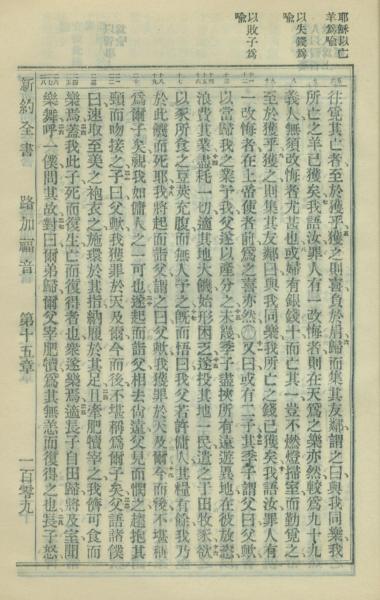 耶穌以亡
羊爲喻
以失錢爲
喻
以敗子爲
喻
往覓其亡者至於獲乎獲之則喜負於肩歸而集其友鄰謂之曰與我同樂我
所亡之羊已獲矣我語汝罪人有一改悔者則在天爲之樂亦然較爲九十九
義人無須改悔者尤甚也或婦有銀錢十而亡其一豈不燃燈掃室而勤覓之
至於獲乎獲之則集其友鄰曰與我同樂我所亡之錢已獲矣我語汝罪人有
一改悔者在上帝使者前爲之喜亦然○又曰或有二子其季子謂父曰父歟
以當歸我之業予我父遂以產分之未幾季子盡挾所有遠遊異地在彼放恣
浪費其業盡耗一切適其地大饑始形困乏遂投其地一民遣之于田牧豕欲
以豕所食之豆莢充腹而無人予之旣而悟曰我父若許傭人其糧有餘我乃
於此饑而死耶我將起而詣父謂之曰父歟我獲罪於天及爾今而後不堪稱
爲爾子矣視我如傭人之一可也遂起而詣父相去尚遠父見而憫之趨抱其
頸而吻接之子曰父歟我獲罪於天及爾今而後不堪稱爲爾子矣父語諸僕
曰速取至美之袍衣之施環於其指納履於其足且牽肥犢宰之我儕可食而
樂焉蓋我此子死而復生亡而復得者也衆遂樂焉適長子自田歸將及室聞
樂舞呼一僕問其故對曰爾弟歸爾父宰肥犢爲其無恙而復得之也長子怒
新約全書 路加福音 第十五章 一百零九